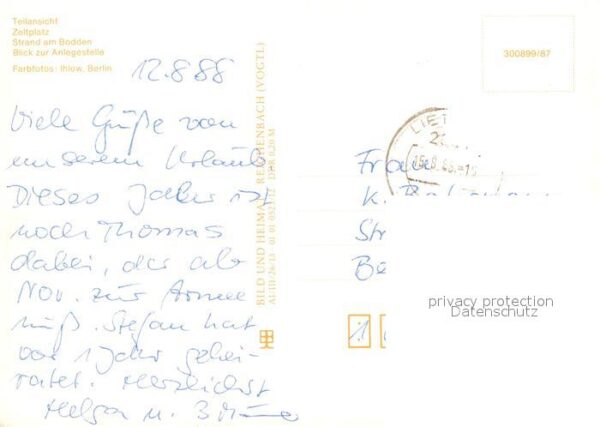 Teilansicht
Zeltplatz
Strand am Bodden
Blick zur Anlegestelle
Farbfotos: Ihlow, Berlin
12.8.88
Viele Grüße von
unserem Urlaub
Dieses Jahr ist
noch Thomas
dabei, der ab
Nov. zur Armee
muß. Stefan hat
vor 1 Jahr gehei-
ratet. Herzlichst
Helga u. 3
BILD UND HEIMAT REICHENBACH (VOGTL)
300899/87
LIET
Frau
K.
Str
Be
1
privacy protection
Datenschutz